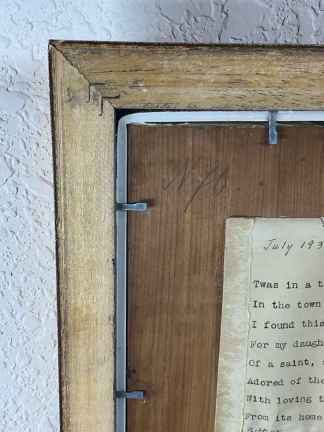 July 193
Twas in a t
In the town
I found this
For my daugh
Of a saint,
Adored of the
With loving t
From its home